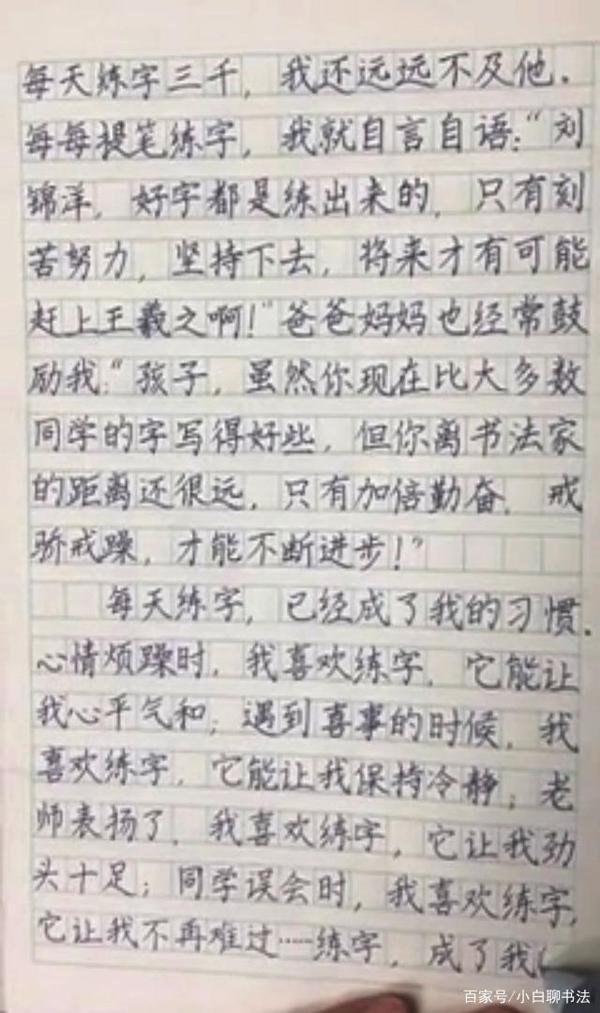 每天炼字三千，我还远远不及他。
每每提笔练字，我就自言自语：“刘
锦洋，好字都是练出来的，只有刻
苦努力，坚持下去，将来才有可能
赶上王羲之啊！”爸爸妈妈也经常鼓
励我：“孩子，虽然你现在比大多数
同学的字写得好些，但你离书法家
的距离还很远，只有加倍勤奋，戒
骄戒躁，才能不断进步！”
每天练字，已经成了我的习惯。
心情烦躁时，我喜欢练字，它能让
我心平气和；遇到喜事的时候，我
喜欢练字，它能让我保持冷静；老
师表扬了，我喜欢练字，它让我劲
头十足；同学误会时，我喜欢练字，
它让我不再难过……练字，成了我
百家号/小白聊书法